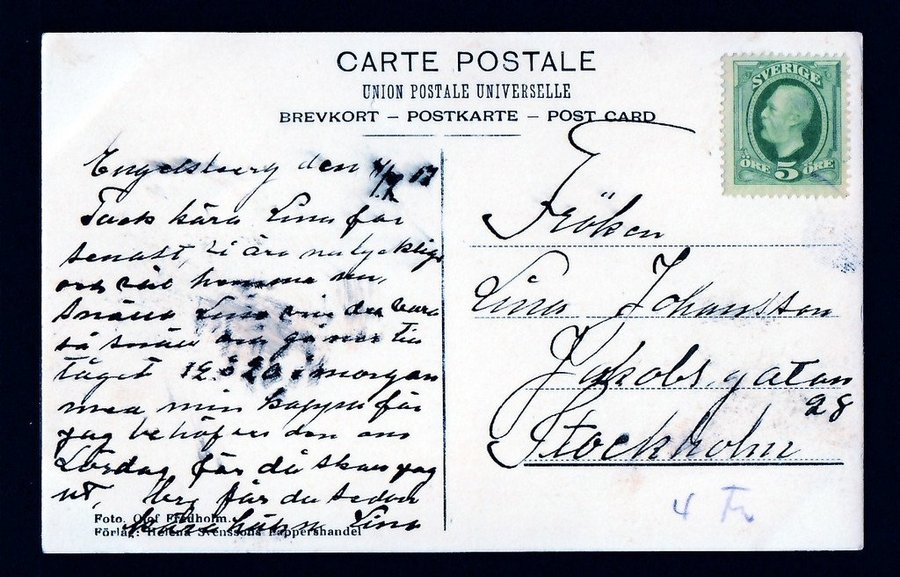 CARTE POSTALE
UNION POSTALE UNIVERSELLE
BREVKORT – POSTKARTE – POST CARD
SVERIGE
ÖRE 5 ÖRE
Engelsberg den
Tack kära Lina för
senast, vi äro nu lyckligt
och väl hemma nu,
snälla Lina vill du vara
så snäll gå ner till
tåget i morgon
med min kappa för
jag behöfver den om
Lördag för då skall jag
ut, får du sedan
Lina
Foto. Olof Fredholm.
Förlag: Helena Svenssons Pappershandel
Fröken
Lina Johansson
Jakobsgatan
28
Stockholm
4 Fr